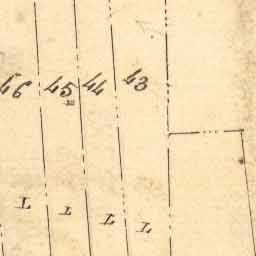 46 45 44 43
T T T T